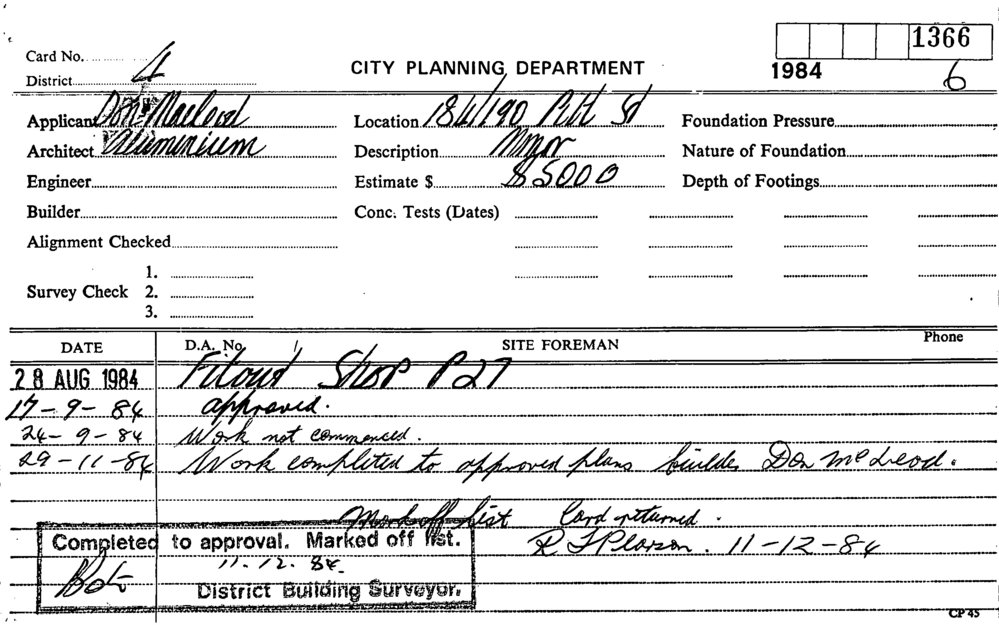 1366
Card No.
CITY PLANNING DEPARTMENT
1984 6
District 4
Applicant Don Macleod Location 184/190 Pitt St Foundation Pressure
Architect Aluminium Description Minor Nature of Foundation
Engineer Estimate $ $5000 Depth of Footings
Builder Conc. Tests (Dates)
Alignment Checked
1.
Survey Check 2.
3.
DATE D.A. No. SITE FOREMAN Phone
28 AUG 1984 Fitout Shop P27
17-9-84 approved.
24-9-84 Work not commenced.
29-11-84 Work completed to approved plans builder Don McLeod.
Mark off list Card returned.
Completed to approval. Marked off list.
R J Pearson. 11-12-84
11.12.84.
District Building Surveyor.
CP 45